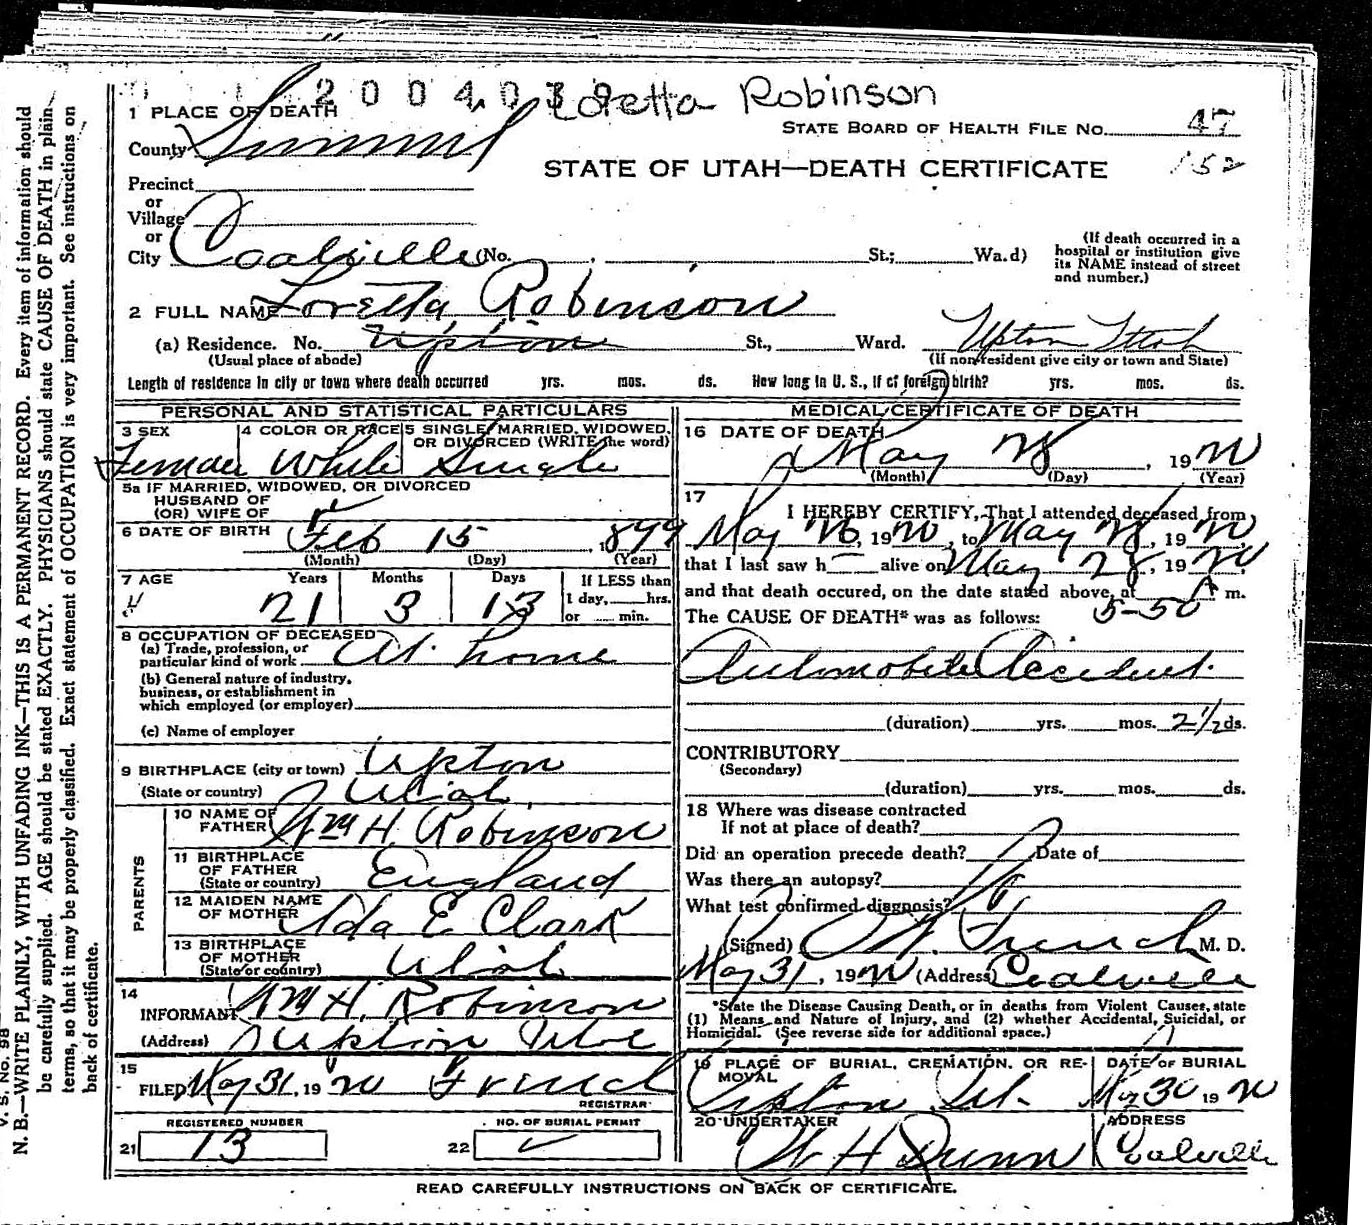 2004039 Loretta Robinson
1 PLACE OF DEATH
STATE BOARD OF HEALTH FILE NO. 47
County Summit
152
STATE OF UTAH—DEATH CERTIFICATE
Precinct
or
Village
or
City Coalville (No. St.; Wa.d)
(If death occurred in a
hospital or institution give
its NAME instead of street
and number.)
2 FULL NAME Loretta Robinson
(a) Residence. No. Upton St., Ward. Upton Utah
(Usual place of abode) (If non-resident give city or town and State)
Length of residence in city or town where death occurred yrs. mos. ds. How long in U. S., if of foreign birth? yrs. mos. ds.
PERSONAL AND STATISTICAL PARTICULARS
3 SEX 4 COLOR OR RACE 5 SINGLE, MARRIED, WIDOWED,
OR DIVORCED (WRITE the word)
Female White Single
5a IF MARRIED, WIDOWED, OR DIVORCED
HUSBAND OF
(OR) WIFE OF
6 DATE OF BIRTH Feb 15, 1899
(Month) (Day) (Year)
7 AGE Years Months Days If LESS than
1 day, hrs.
or min.
21 3 13
8 OCCUPATION OF DECEASED
(a) Trade, profession, or
particular kind of work At home
(b) General nature of industry,
business, or establishment in
which employed (or employer)
(c) Name of employer
9 BIRTHPLACE (city or town) Upton
(State or country) Utah
PARENTS
10 NAME OF
FATHER Wm H. Robinson
11 BIRTHPLACE
OF FATHER
(State or country) England
12 MAIDEN NAME
OF MOTHER Ida E Clark
13 BIRTHPLACE
OF MOTHER
(State or country) Utah
14
INFORMANT Wm H. Robinson
(Address) Upton Utah
15
FILED May 31, 1920 French
REGISTRAR
REGISTERED NUMBER NO. OF BURIAL PERMIT
21 13 22
MEDICAL CERTIFICATE OF DEATH
16 DATE OF DEATH
May 28, 1920
(Month) (Day) (Year)
17
I HEREBY CERTIFY, That I attended deceased from
May 26, 1920, to May 28, 1920,
that I last saw h alive on May 28, 1920,
and that death occured, on the date stated above, at 5-50 A m.
The CAUSE OF DEATH* was as follows:
Automobile Accident.
(duration) yrs. mos. 2 1/2 ds.
CONTRIBUTORY
(Secondary)
(duration) yrs. mos. ds.
18 Where was disease contracted
If not at place of death?
Did an operation precede death? Date of
Was there an autopsy?
What test confirmed diagnosis?
(Signed) French M. D.
May 31, 1920 (Address) Coalville
*State the Disease Causing Death, or in deaths from Violent Causes, state
(1) Means and Nature of Injury, and (2) whether Accidental, Suicidal, or
Homicidal. (See reverse side for additional space.)
19 PLACE OF BURIAL, CREMATION, OR RE-
MOVAL
DATE OF BURIAL
Upton Ut. May 30 1920
20 UNDERTAKER ADDRESS
W H Dunn Coalville
READ CAREFULLY INSTRUCTIONS ON BACK OF CERTIFICATE.
V. S. No. 98
N. B.—WRITE PLAINLY, WITH UNFADING INK—THIS IS A PERMANENT RECORD. Every item of information should
be carefully supplied. AGE should be stated EXACTLY. PHYSICIANS should state CAUSE OF DEATH in plain
terms, so that it may be properly classified. Exact statement of OCCUPATION is very important. See instructions on
back of certificate.